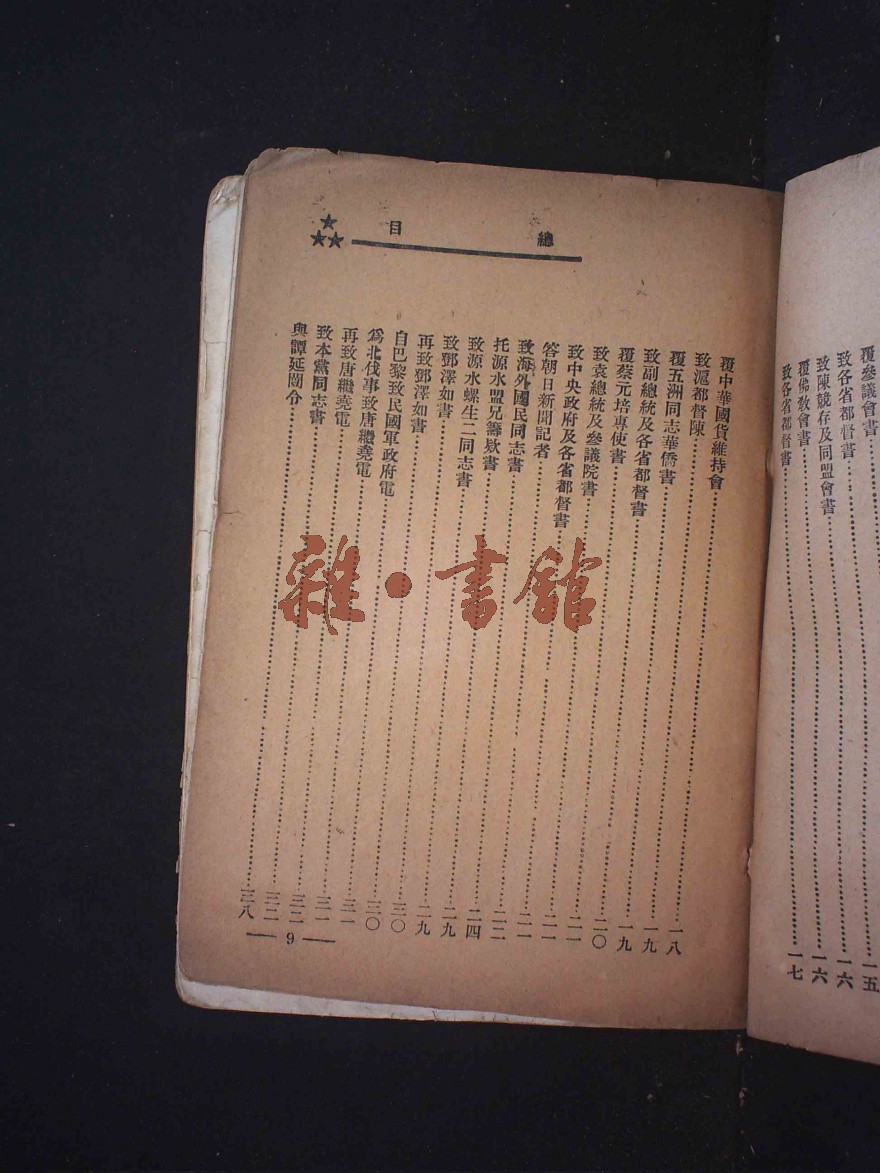 覆參議會書
致各省都督書⋯⋯一五
致陳競存及同盟會書⋯⋯一六
覆佛教會書⋯⋯一六
致各省都督書⋯⋯一七
總目
覆中華國貨維持會⋯⋯一八
致滬都督陳⋯⋯一九
覆五洲同志華僑書⋯⋯一九
致副總統及各省都督書⋯⋯二〇
覆蔡元培專使書⋯⋯二一
致袁總統及參議院書⋯⋯二一
致中央政府及各省都督書⋯⋯二一
答朝日新聞記者⋯⋯二二
致海外國民同志書⋯⋯二四
托源水盟兄籌欵書⋯⋯二九
致源水螺生二同志書⋯⋯二九
致鄧澤如書⋯⋯三〇
再致鄧澤如書⋯⋯三〇
自巴黎致民國軍政府電⋯⋯三一
爲北伐事致唐繼堯電⋯⋯三一
再致唐繼堯電⋯⋯三二
致本黨同志書⋯⋯三二
與譚延闓令⋯⋯三八
— 9 —
雜·書館